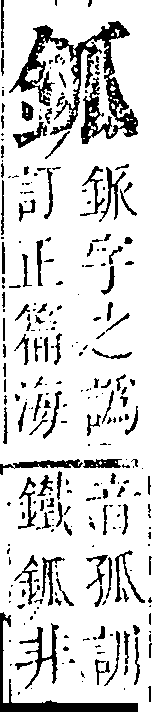 鈲
釽字之譌
訂正篇海
音孤訓
鐵鈲非